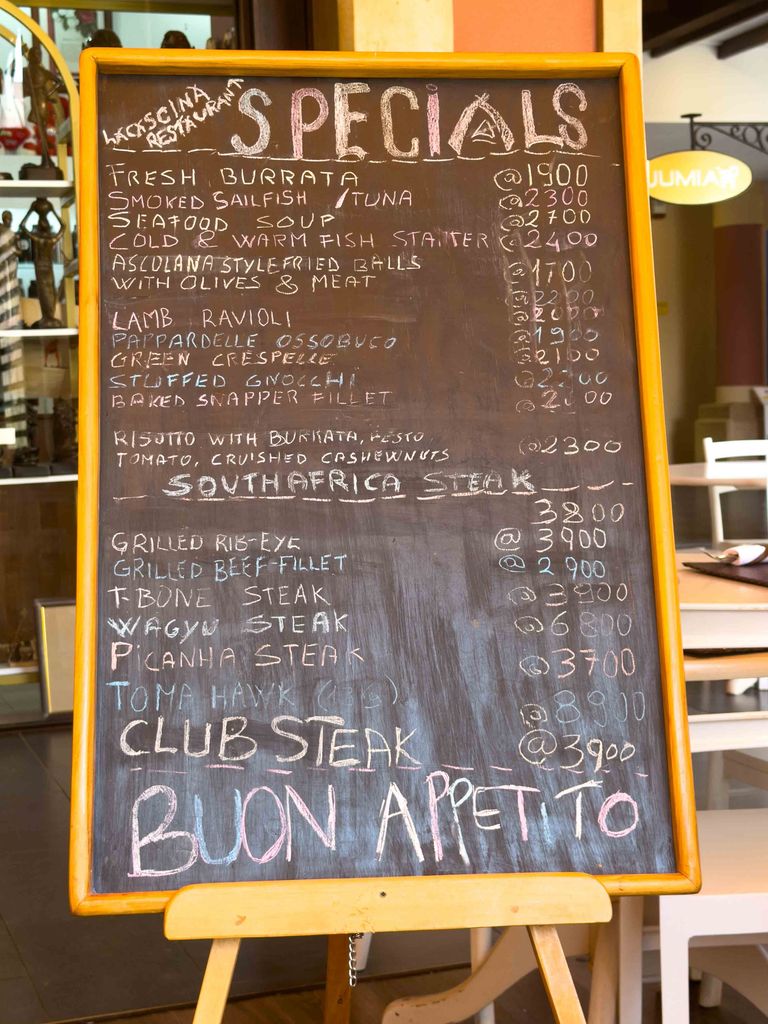 LACASCINA
RESTAURANT
SPECIALS
FRESH BURRATA @1900
SMOKED SAILFISH / TUNA @2300
SEAFOOD SOUP @2700
COLD & WARM FISH STARTER @2400
ASCOLANA STYLE FRIED BALLS @1700
WITH OLIVES & MEAT
LAMB RAVIOLI
PAPPARDELLE OSSOBUCO
GREEN CRESPELLE @2100
STUFFED GNOCCHI @2200
BAKED SNAPPER FILLET
RISOTTO WITH BURRATA, PESTO,
TOMATO, CRUISHED CASHEWNUTS @2300
SOUTHAFRICA STEAK
3800
GRILLED RIB-EYE @3900
GRILLED BEEF-FILLET @2900
T-BONE STEAK @3900
WAGYU STEAK @6800
PICANHA STEAK @3700
TOMA HAWK @8900
CLUB STEAK @3900
BUON APPETITO
JUMIA